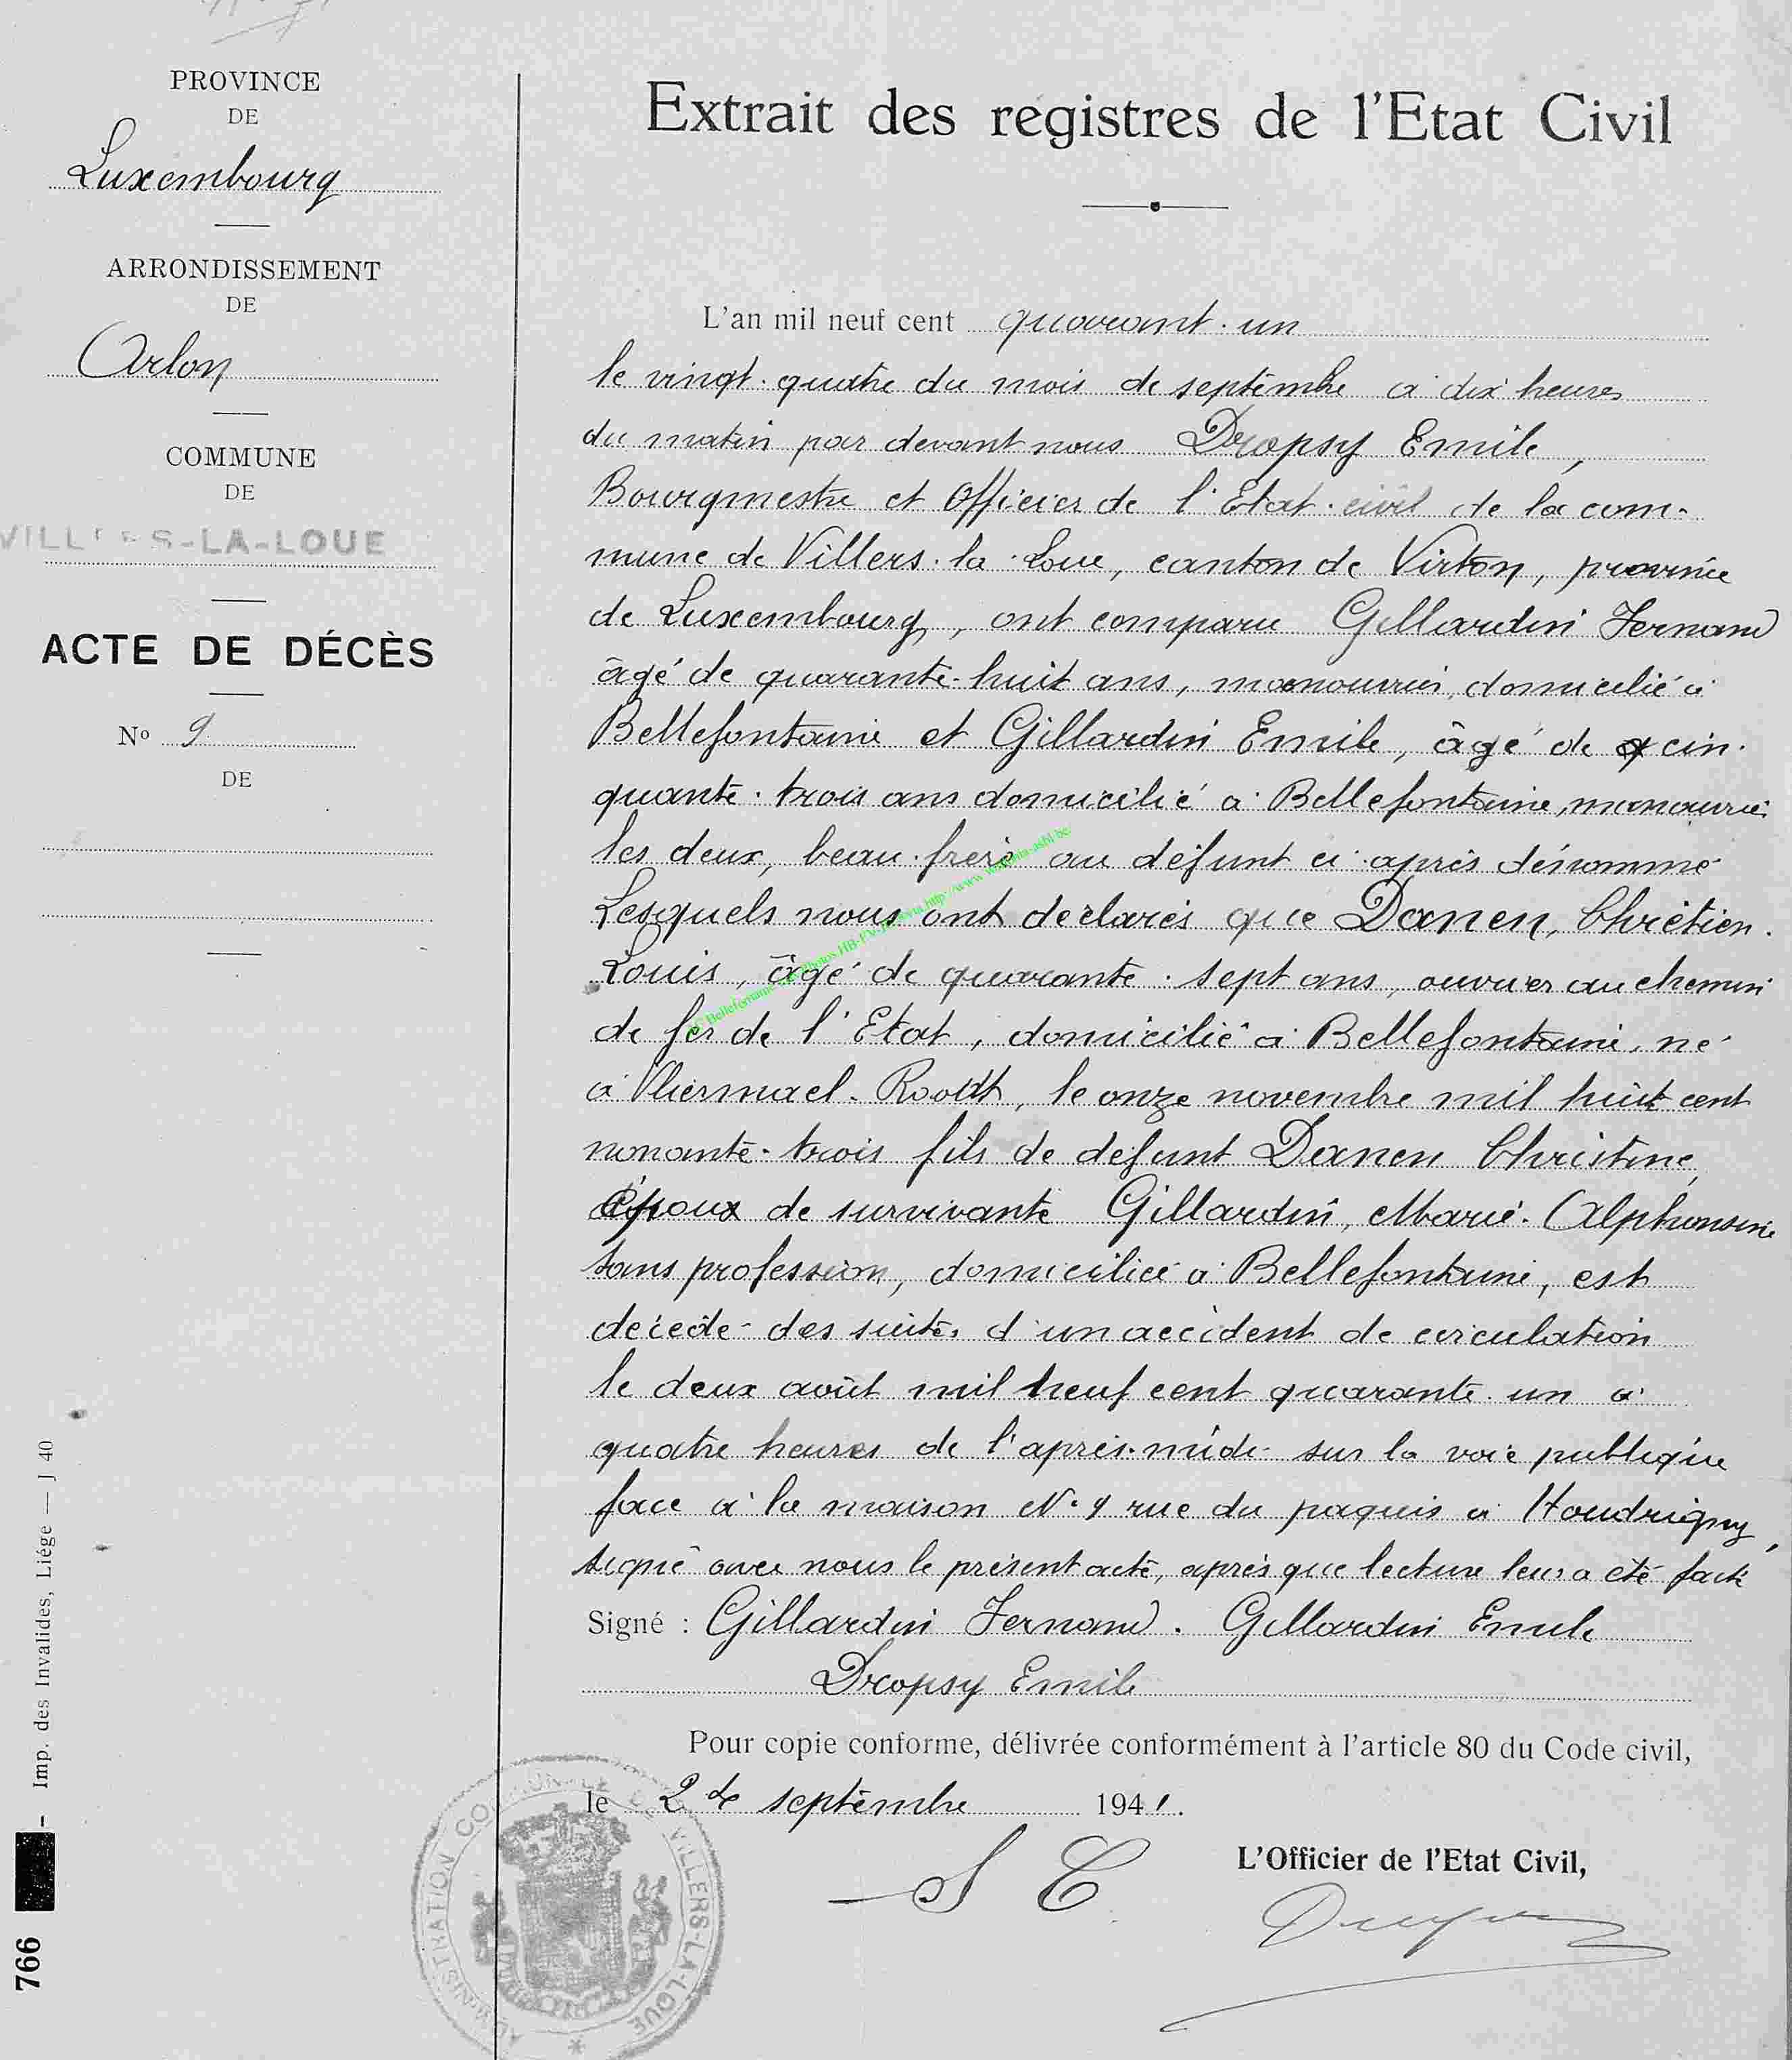 PROVINCE
DE
Luxembourg
ARRONDISSEMENT
DE
Arlon
COMMUNE
DE
VILLERS-LA-LOUE
ACTE DE DÉCÈS
No 9
DE
Imp. des Invalides, Liége — J 40
766
Extrait des registres de l'Etat Civil
L'an mil neuf cent quarant-un
le vingt-quatre du mois de septembre à dix heures
du matin par devant nous Dropsy Emile,
Bourgmestre et Officier de l'Etat-civil de la com-
mune de Villers-la-Loue, canton de Virton, province
de Luxembourg, ont comparu Gillardin Fernand
âgé de quarante-huit ans, manouvrier, domicilié à
Bellefontaine et Gillardin Emile, âgé de cin-
quante-trois ans domicilié à Bellefontaine, manouvrier
les deux, beau-frère au défunt ci-après dénommé
Lesquels nous ont déclarés que Danen, Chrétien-
Louis, âgé de quarante-sept ans, ouvrier au chemin
de fer de l'Etat, domicilié à Bellefontaine, né
à Vliermael-Roodt, le onze novembre mil huit cent
nonante-trois fils de défunt Danen Christine,
époux de survivante Gillardin, Marie-Alphonsine
sans profession, domiciliée à Bellefontaine, est
décédé des suites d'un accident de circulation
le deux août mil neuf cent quarante-un à
quatre heures de l'après-midi sur la voie publique
face à la maison N° 9 rue du paquis à Houdrigny,
signé avec nous le présent acte, après que lecture leur a été faite
Signé : Gillardin Fernand. Gillardin Emile
Dropsy Emile
Pour copie conforme, délivrée conformément à l'article 80 du Code civil,
le 24 septembre 1941.
S C
L'Officier de l'Etat Civil,
ADMINISTRATION COMMUNALE VILLERS-LA-LOUE